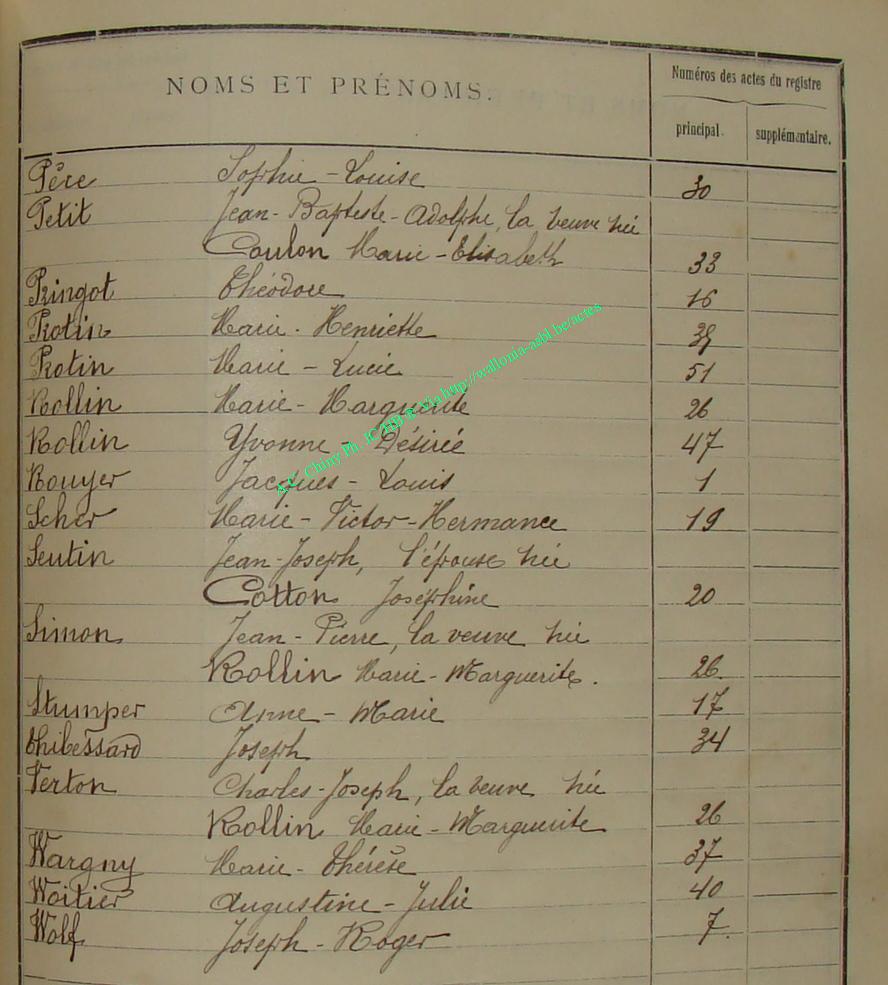 NOMS ET PRÉNOMS.
Numéros des actes du registre
principal. supplémentaire.
Père Sophie - Louise 30
Petit Jean-Baptiste-Adolphe, la veuve née
Coulon Marie-Elisabeth 33
Pringot Théodore 16
Protin Marie-Henriette
Protin Marie - Lucie 51
Rollin Marie-Marguerite 26
Rollin Yvonne-Désirée 47
Rouyer Jacques-Louis 1
Scher Marie-Victor-Hermance 19
Seutin Jean-Joseph, l'épouse née
Cotton Joséphine 20
Simon Jean-Pierre, la veuve née
Rollin Marie-Marguerite. 26
Stumper Anne-Marie 17
Thibessard Joseph 34
Verton Charles-Joseph, la veuve née
Rollin Marie-Marguerite 26
Wargny Marie-Thérèse 37
Woitier Augustine-Julie 40
Wolf Joseph-Roger 7.
A.E. Chiny Ph. via http://wallonia-asbl.be/actes